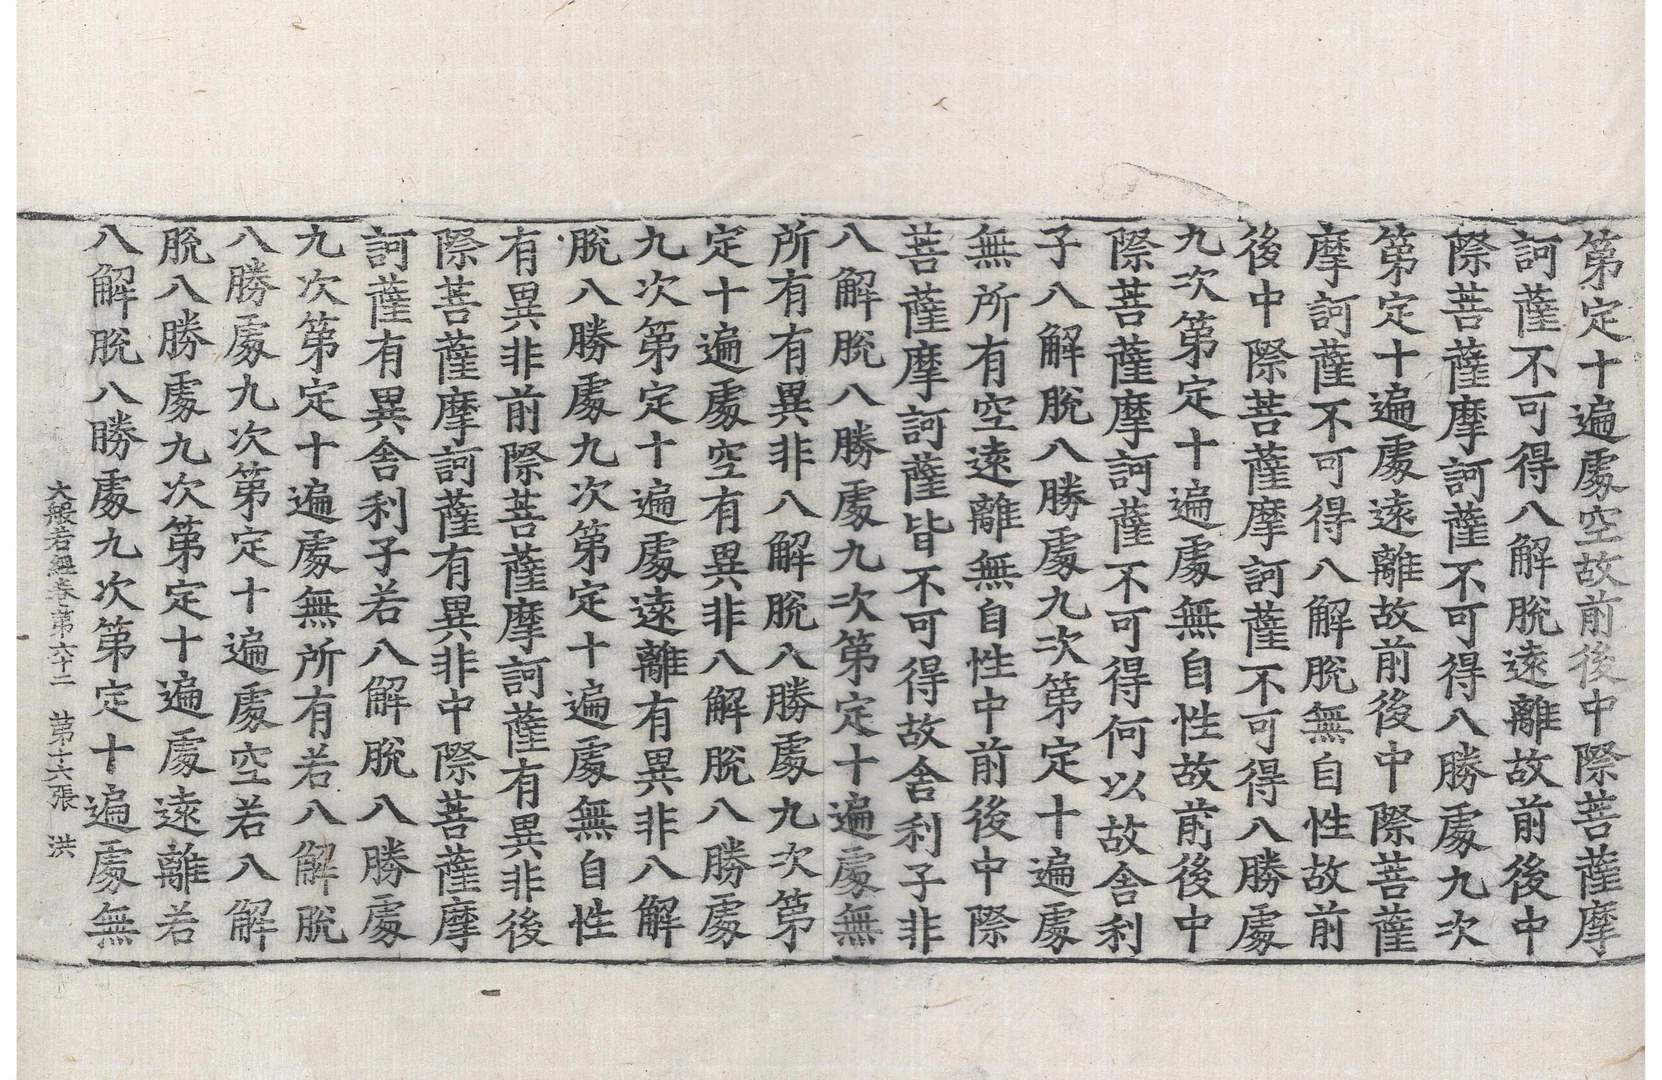 第定十遍處空故前後中際菩薩摩
訶薩不可得八解脫遠離故前後中
際菩薩摩訶薩不可得八勝處九次
第定十遍處遠離故前後中際菩薩
摩訶薩不可得八解脫無自性故前
後中際菩薩摩訶薩不可得八勝處
九次第定十遍處無自性故前後中
際菩薩摩訶薩不可得何以故舍利
子八解脫八勝處九次第定十遍處
無所有空遠離無自性中前後中際
菩薩摩訶薩皆不可得故舍利子非
八解脫八勝處九次第定十遍處無
所有有異非八解脫八勝處九次第
定十遍處空有異非八解脫八勝處
九次第定十遍處遠離有異非八解
脫八勝處九次第定十遍處無自性
有異非前際菩薩摩訶薩有異非後
際菩薩摩訶薩有異非中際菩薩摩
訶薩有異舍利子若八解脫八勝處
九次第定十遍處無所有若八解脫
八勝處九次第定十遍處空若八解
脫八勝處九次第定十遍處遠離若
八解脫八勝處九次第定十遍處無
大般若經卷第六十二 第十六張 洪